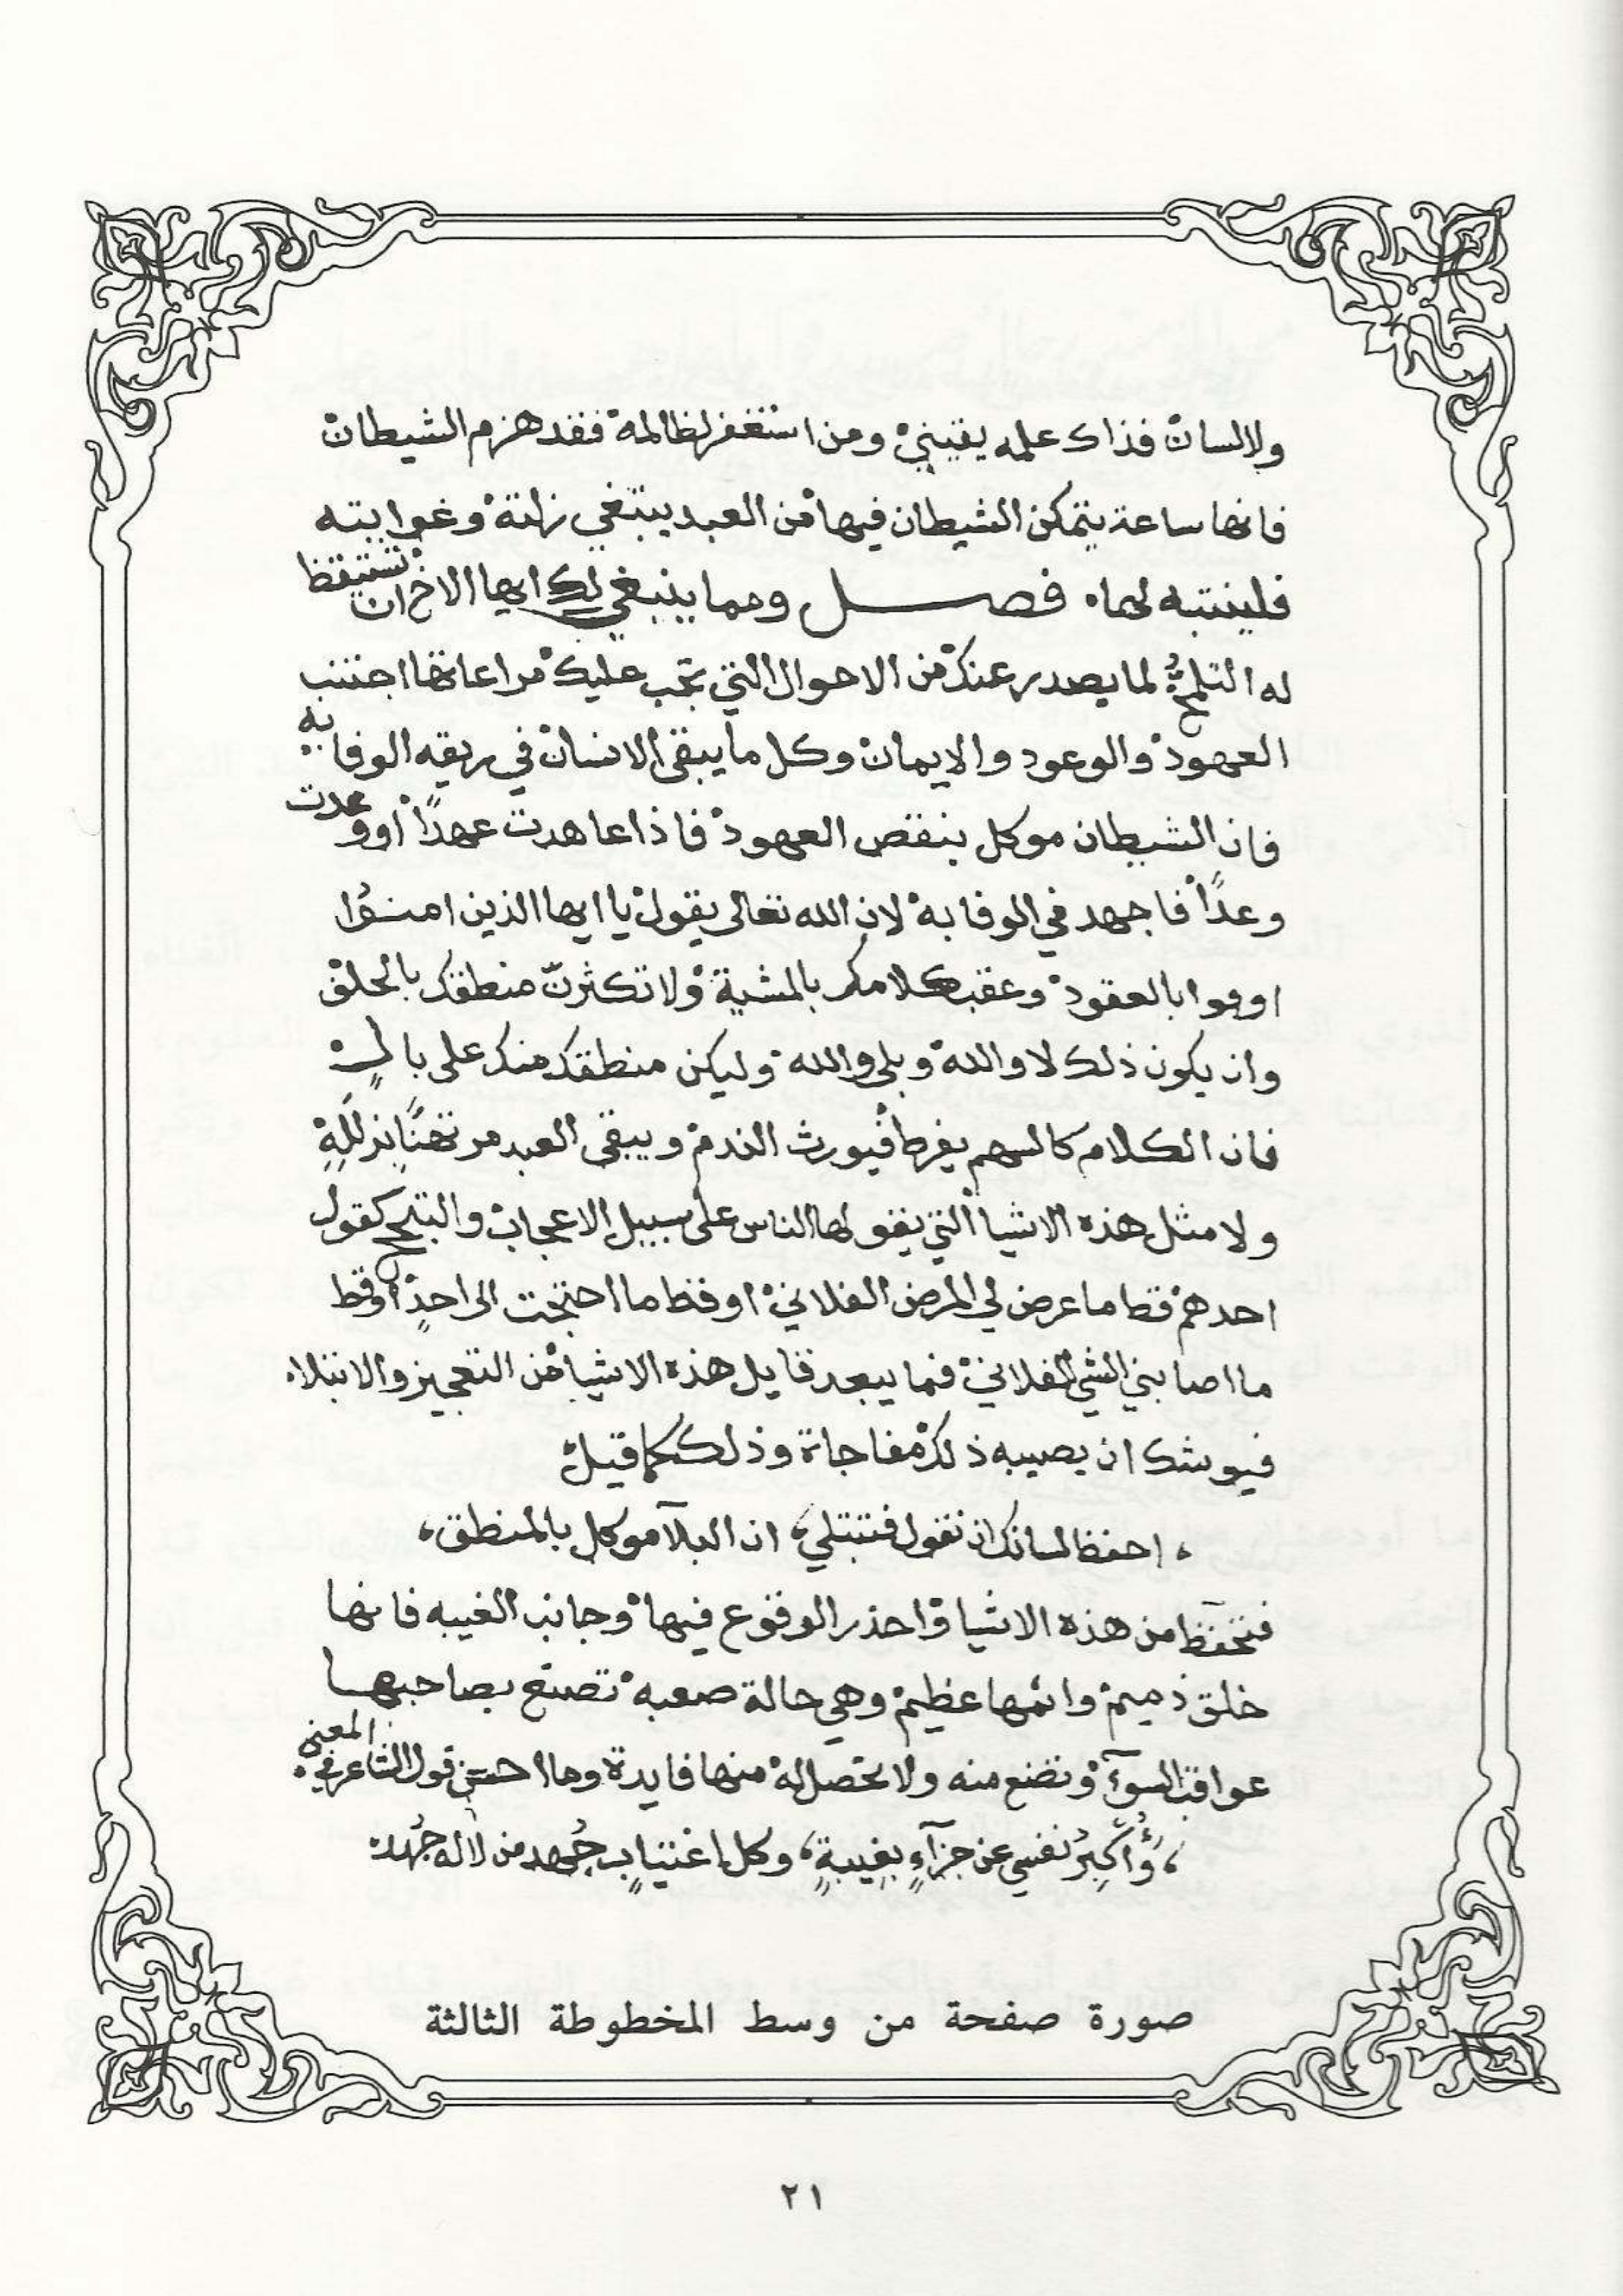 ولالسان فذاك علمه يقيني ومن استغفر لظالمه فقد هزم الشيطان
فانها ساعة يتمكن الشيطان فيها من العبد يبتغي زلته وغوايته
فلينتبه لهما٠ فصل ومما ينبغي لك ايها الاخ ان تستيقظ
له التلمح لما يصدر عنك من الاحوال التي تجب عليك مراعاتها اجتنب
العهود والوعود والايمان وكل ما يبقى الانسان في ربقه الوفا به
فان الشيطان موكل بنقض العهود فاذا عاهدت عهدًا اووعدت
وعدًا فاجهد في الوفا به لان الله تعالى يقول يا ايها الذين امنوا
اوفوا بالعقود وعقب كلامك بالمشية ولا تكثرن منطقك بالحلف
وان يكون ذلك لا والله وبلى والله وليكن منطقك منك على بالٍ
فان الكلام كالسهم يفرط فيورث الندم ويبقى العبد مرتهنًا بزللهِ
ولا مثل هذه الاشيا التي يقولها الناس على سبيل الاعجاب والتبجح كقول
احدهم قط ما عرض لي المرض الفلاني او قط ما احتجت الى احدٍ اوقط
ما اصابني الشي الفلاني فما يبعد قايل هذه الاشيا من التعجيز والابتلاء
فيوشك ان يصيبه ذلك مفاجاة وذلك كما قيل
، احفظ لسانك ان تقول فتبتلي، ان البلآ موكل بالمنطق،
فتحفظ من هذه الاشيا واحذر الوقوع فيها وجانب الغيبه فانها
خلق ذميم واثمها عظيم وهي حالة صعبه تصنع بصاحبها
عواقب السوٓء وتضع منه ولا تحصل له منها فايدة وما احسن قول الشاعر في المعنى٠
، وأُكْبِرُ نفسي عن جزآءٍ بغيبةٍ، وكل اغتيابٍ جُهد من لا له جُهد
صورة صفحة من وسط المخطوطة الثالثة
٢١